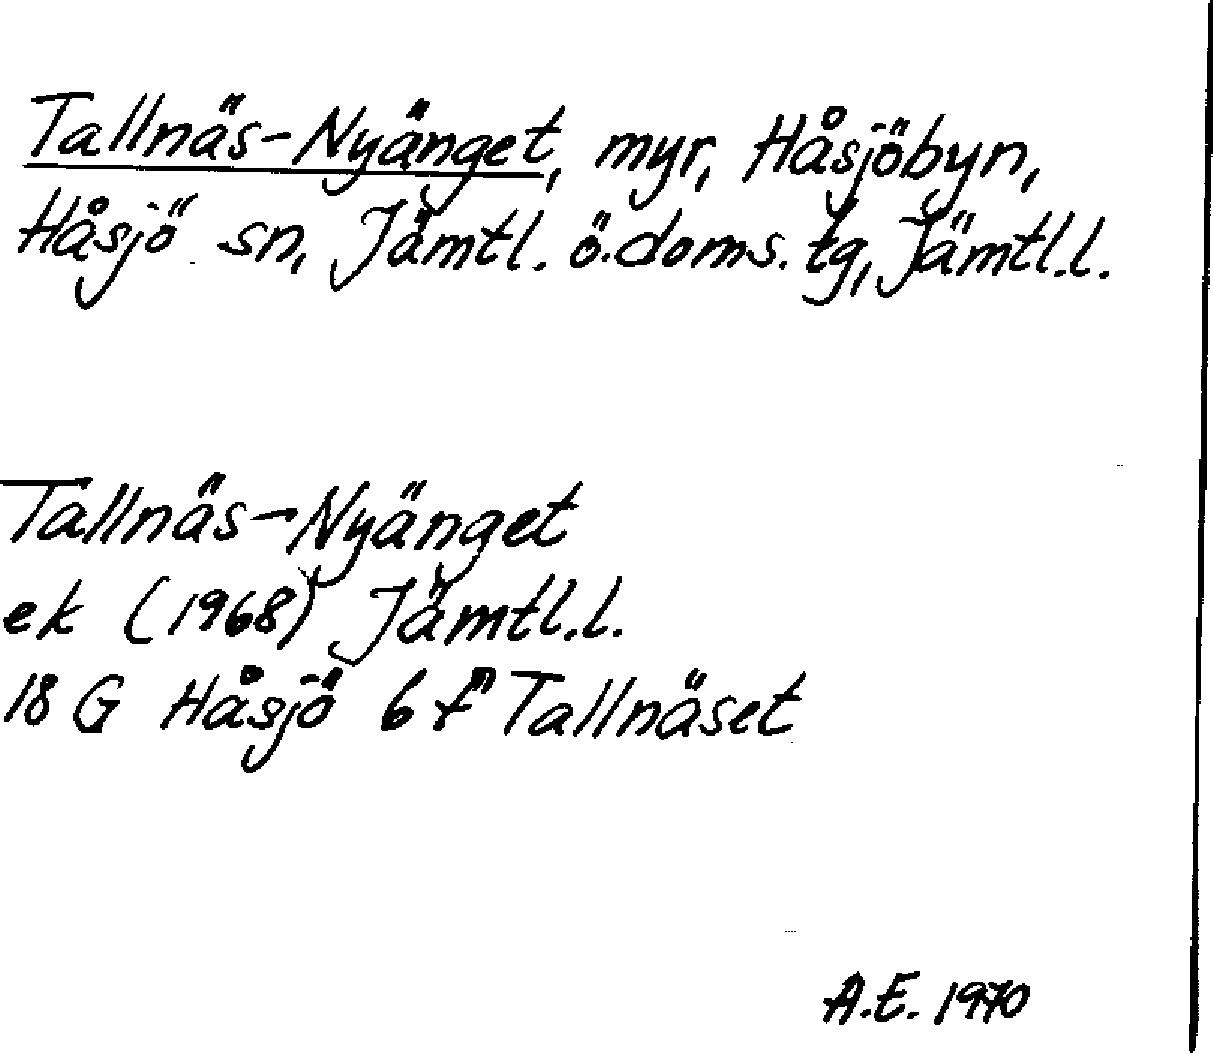 Tallnäs-Nyänget, myr, Håsjöbyn,
Håsjö sn, Jämtl. ö.doms. tg, Jämtl.l.
Tallnäs-Nyänget
ek (1968) Jämtl.l.
18 G Håsjö 6 f Tallnäset
A.E. 1970